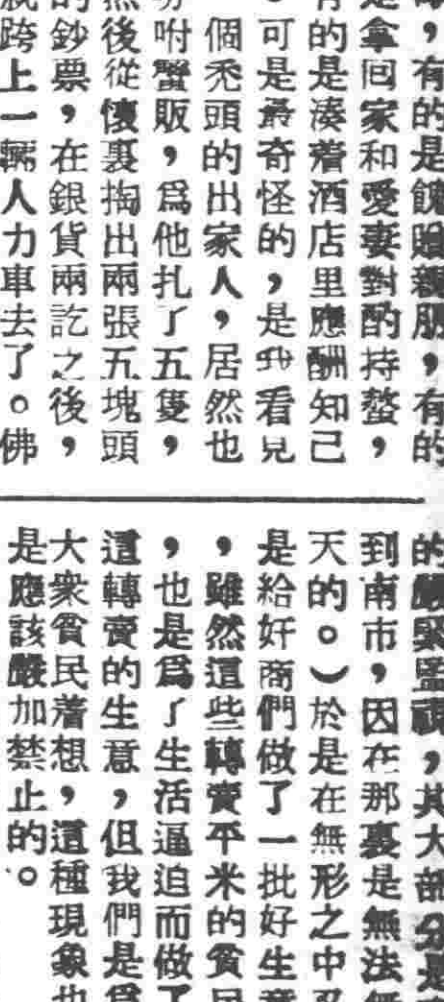 ，有的是餽贈親朋，有的
是拿回家和愛妻對酌持螯，
的是湊着酒店里應酬知己
。可是最奇怪的，是我看見
個禿頭的出家人，居然也
吩咐蟹販，爲他扎了五隻，
然後從懷裏掏出兩張五塊頭
的鈔票，在銀貨兩訖之後，
就跨上一輛人力車去了。佛
的嚴緊監視，其大部分是
到南市，因在那裏是無法
天的。）於是在無形之中
是給奸商們做了一批好生意
，雖然這些轉賣平米的貧民
，也是爲了生活逼迫而做了
這轉賣的生意，但我們是爲
大衆貧民着想，這種現象也
是應該嚴加禁止的。